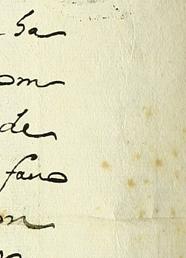 ha
om
de
fano
on